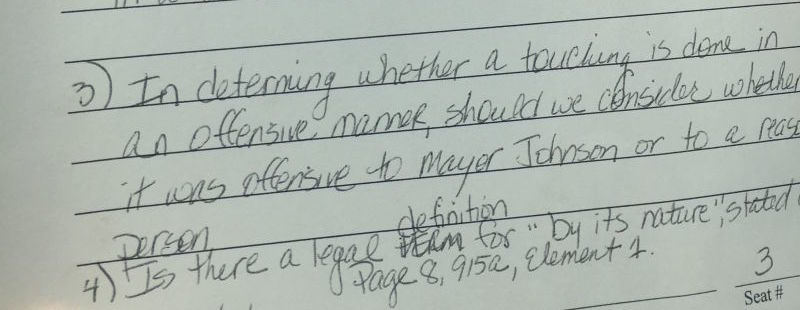 3) In determing whether a touching is done in
an offensive manner, should we consider whether
it was offensive to Mayor Johnson or to a reas
person
4) Is there a legal definition for "by its nature", stated
Page 8, 915a, Element 1.
3
Seat #